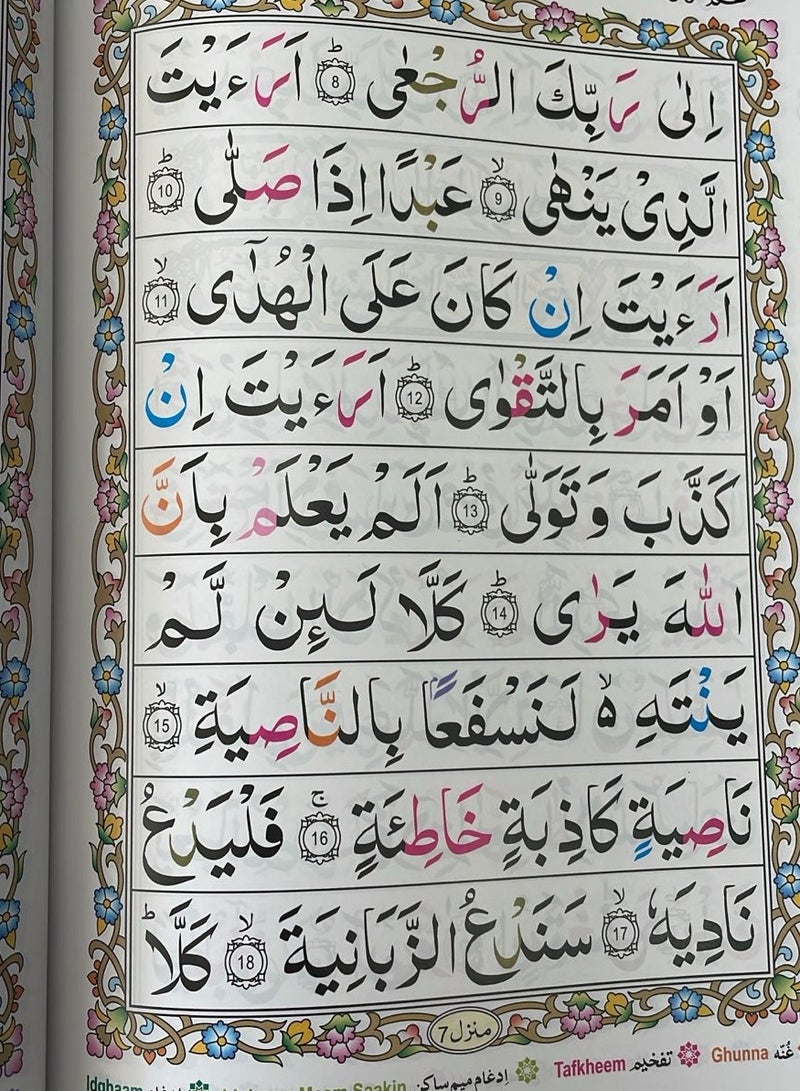 اِلٰى رَبِّكَ الرُّجْعٰى ؕ 8 اَرَءَيْتَ
الَّذِىْ يَنْهٰى ۙ 9 عَبْدًا اِذَا صَلّٰى ؕ 10
اَرَءَيْتَ اِنْ كَانَ عَلَى الْهُدٰٓى ۙ 11
اَوْ اَمَرَ بِالتَّقْوٰى ؕ 12 اَرَءَيْتَ اِنْ
كَذَّبَ وَتَوَلّٰى ؕ 13 اَلَمْ يَعْلَمْ بِاَنَّ
اللّٰهَ يَرٰى ؕ 14 كَلَّا لَـئِنْ لَّمْ
يَنْتَهِ ۙ۬ لَنَسْفَعًۢا بِالنَّاصِيَةِ ۙ 15
نَاصِيَةٍ كَاذِبَةٍ خَاطِئَةٍ ۚ 16 فَلْيَدْعُ
نَادِيَهٗ ۙ 17 سَنَدْعُ الزَّبَانِيَةَ ۙ 18 كَلَّا ؕ
منزل 7
غُنّه Ghunna تفخيم Tafkheem اِدغام ميم ساكن Meem Saakin Idghaam